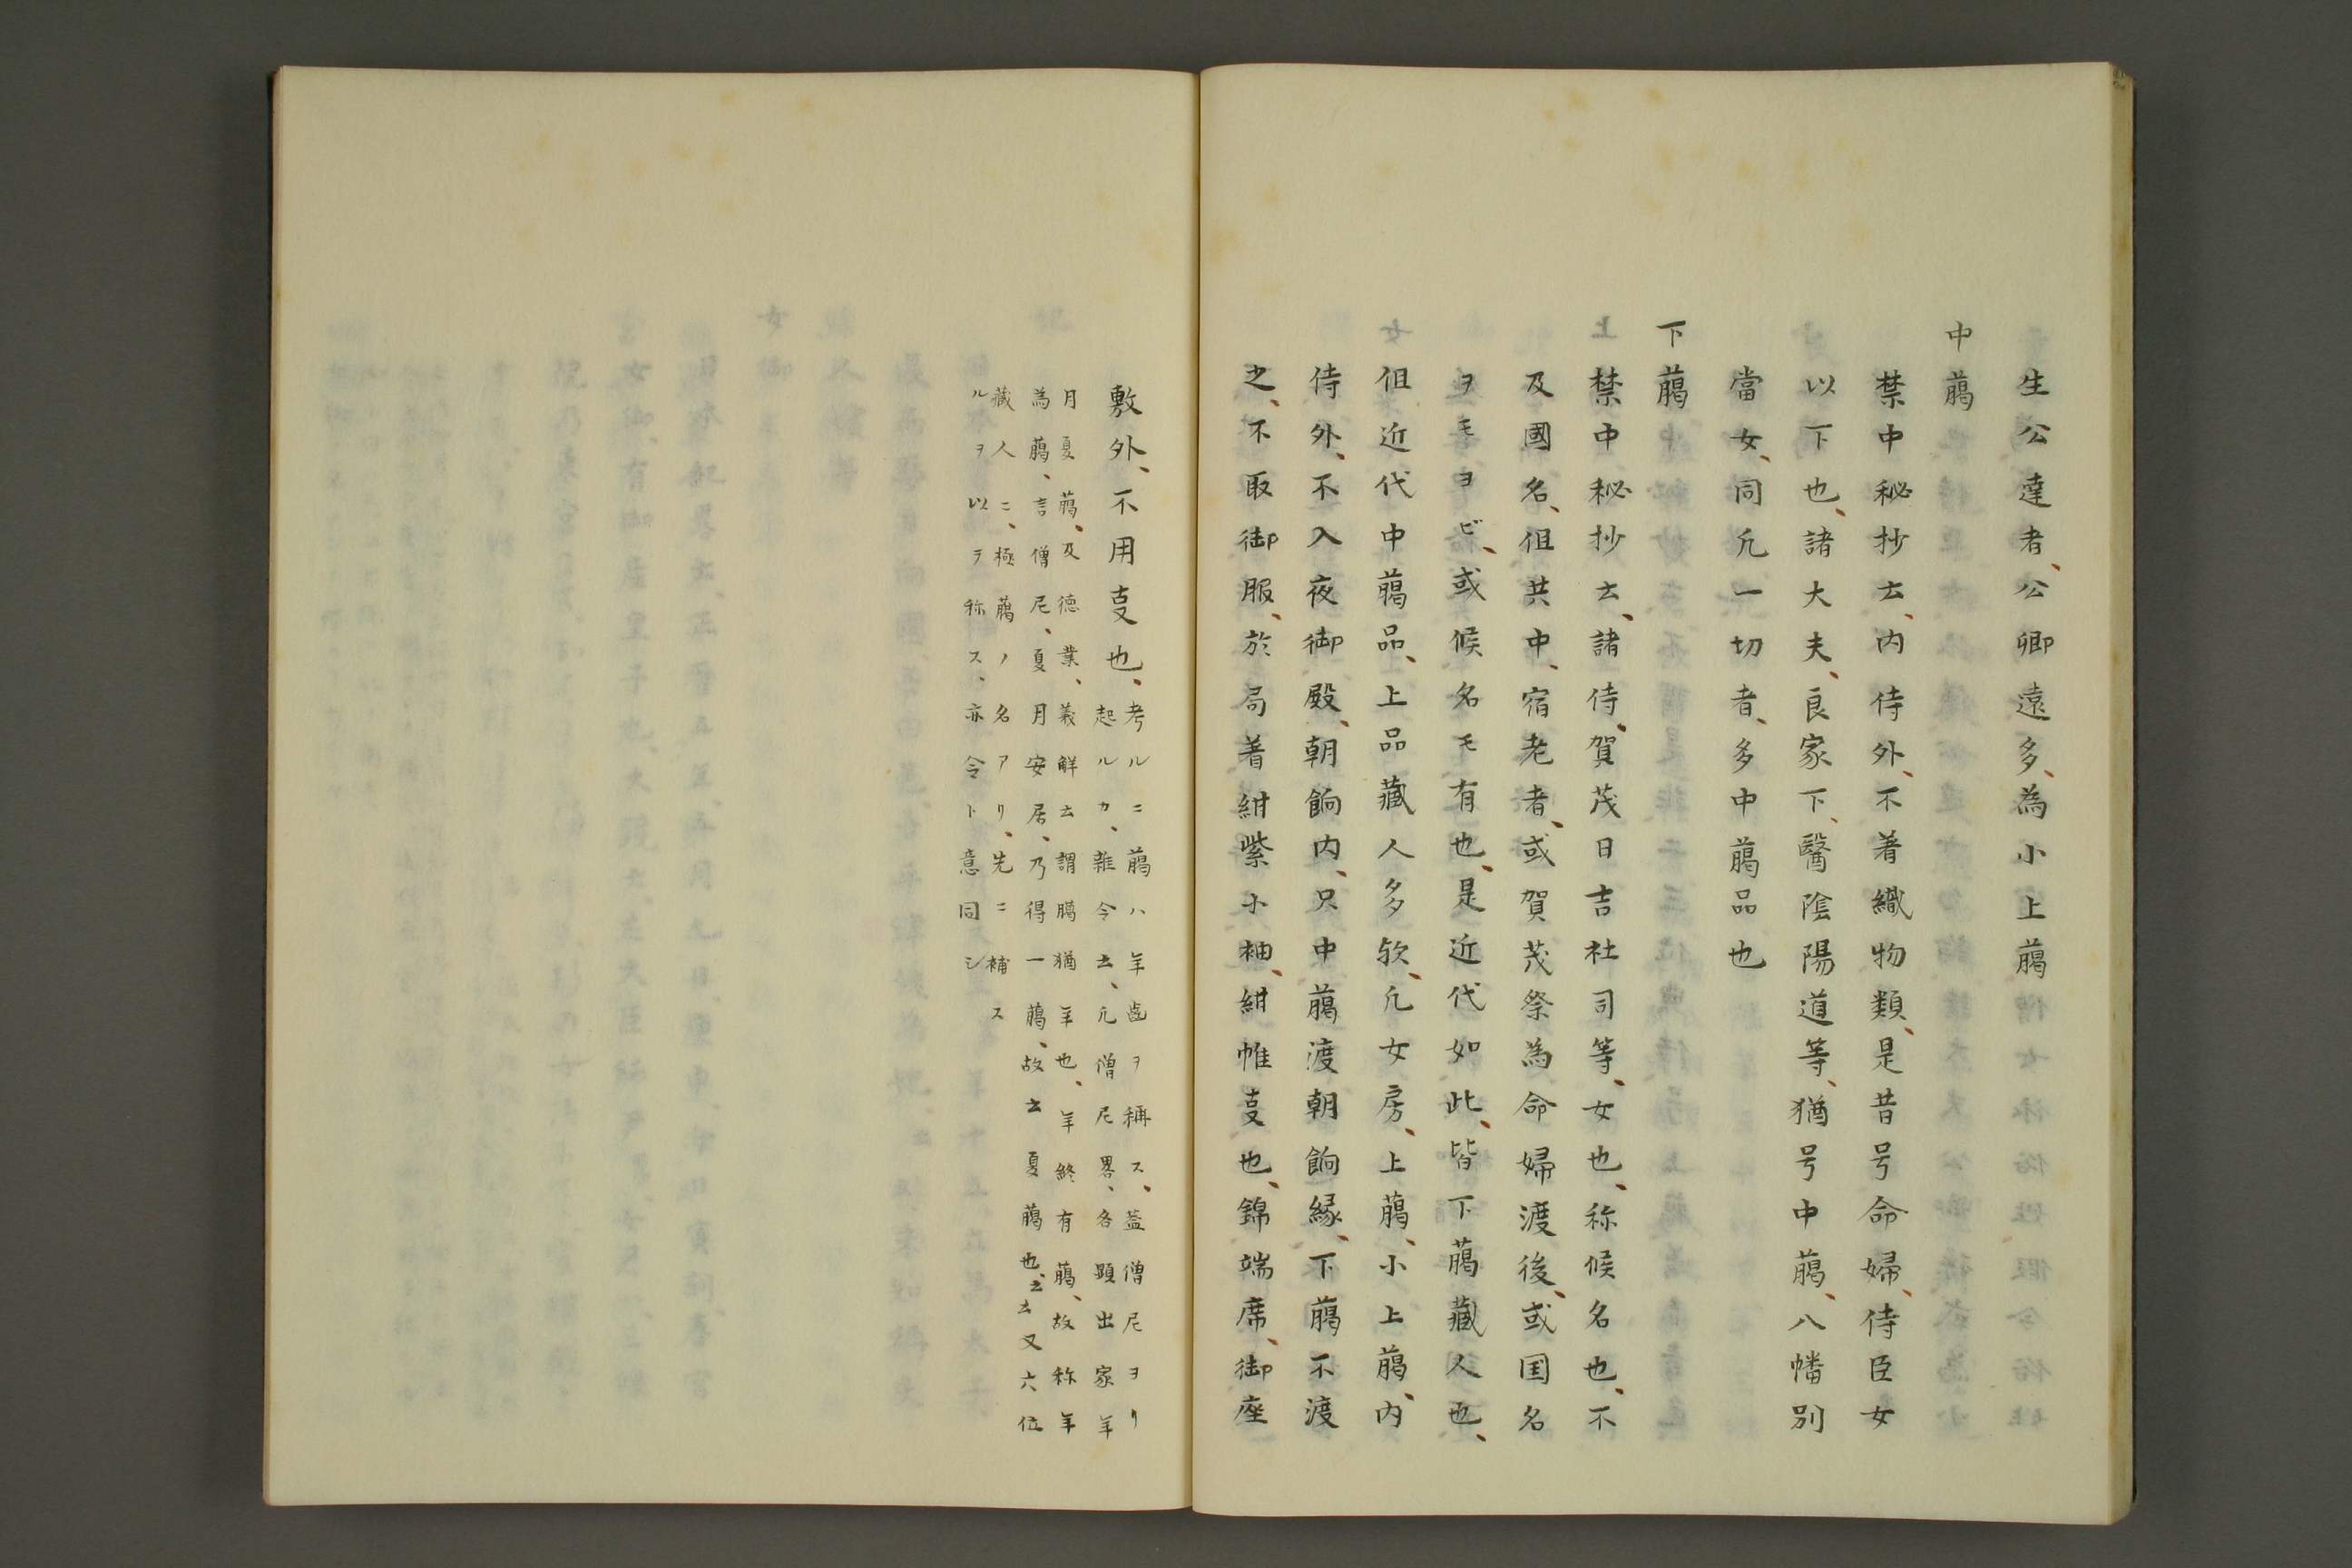 生公達者、公卿遠多、為小上﨟
中﨟
禁中秘抄云、内侍外、不着織物類、是昔号命婦、侍臣女
以下也、諸大夫、良家下、醫陰陽道等、猶号中﨟、八幡別
當女、同凢一切者、多中﨟品也
下﨟
禁中秘抄云、諸侍、賀茂日吉社司等、女也、称候名也、不
及國名、但共中、宿老者、或賀茂祭為命婦渡後、或国名
ヲモヨビ、或候名モ有也、是近代如此、皆下﨟藏人也、
但近代中﨟品、上品藏人多欤、凢女房、上﨟、小上﨟、内
侍外、不入夜御殿、朝餉内、只中﨟渡朝餉縁、下﨟不渡
之、不取御服、於局着紺紫小袖、紺帷㕝也、錦端席、御座
敷外、不用㕝也、
考ルニ﨟ハ年齒ヲ稱ス、益僧尼ヨリ
起ルカ、雜令云、凢僧尼畧、各顕出家年
月夏﨟、及徳業、義解云謂臈猶年也、年終有﨟、故称年
為﨟、言僧尼、夏月安居、乃得一﨟、故云夏﨟也、云云又六位
藏人ニ、極﨟ノ名アリ、先ニ補ス
ルヲ以ヲ称ス、亦令ト意同シ